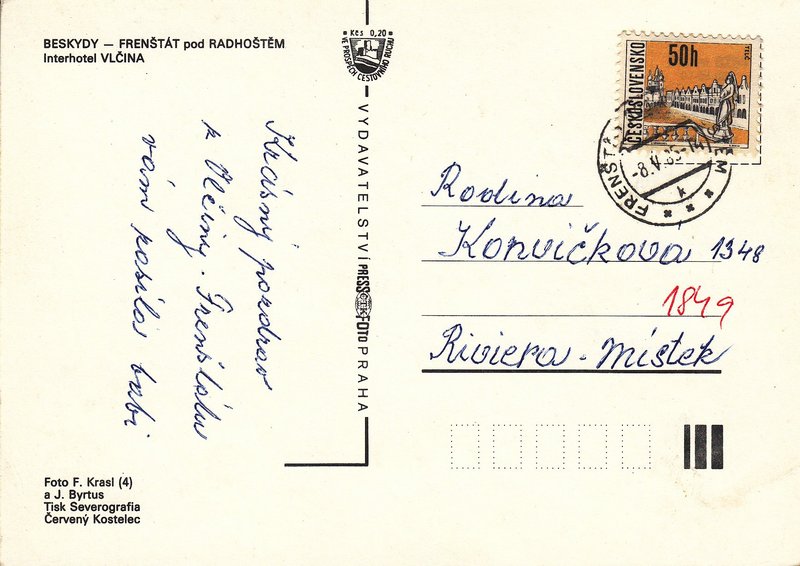 BESKYDY — FRENŠTÁT pod RADHOŠTĚM
Interhotel VLČINA
Kčs 0,20
VE PROSPĚCH CESTOVNÍHO RUCHU
Krásný pozdrav
z Vlčiny. Frenštátu
vám posílá babi
VYDAVATELSTVÍ PRESSFOTO PRAHA
ČTK
ČESKOSLOVENSKO
50h
TELČ
FRENŠTÁT
-8.V.85-14
k
Rodina
Konvičková 1348
1849
Riviera - Místek
Foto F. Krasl (4)
a J. Byrtus
Tisk Severografia
Červený Kostelec